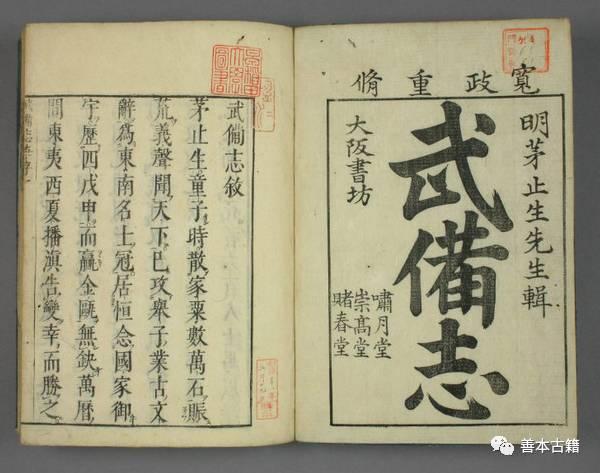 寬政重脩
明茅止生先生輯
武備志
大阪書坊
嘯月堂
崇髙堂
賭春堂
武備志敘
茅止生童子時散家粟數萬石賑
荒義聲聞天下已攻舉子業古文
辭爲東南名士冠居恒念國家御
宇歷四戊申而羸金甌無缺萬曆
間東夷西夏播滇告變幸而勝之
善本古籍